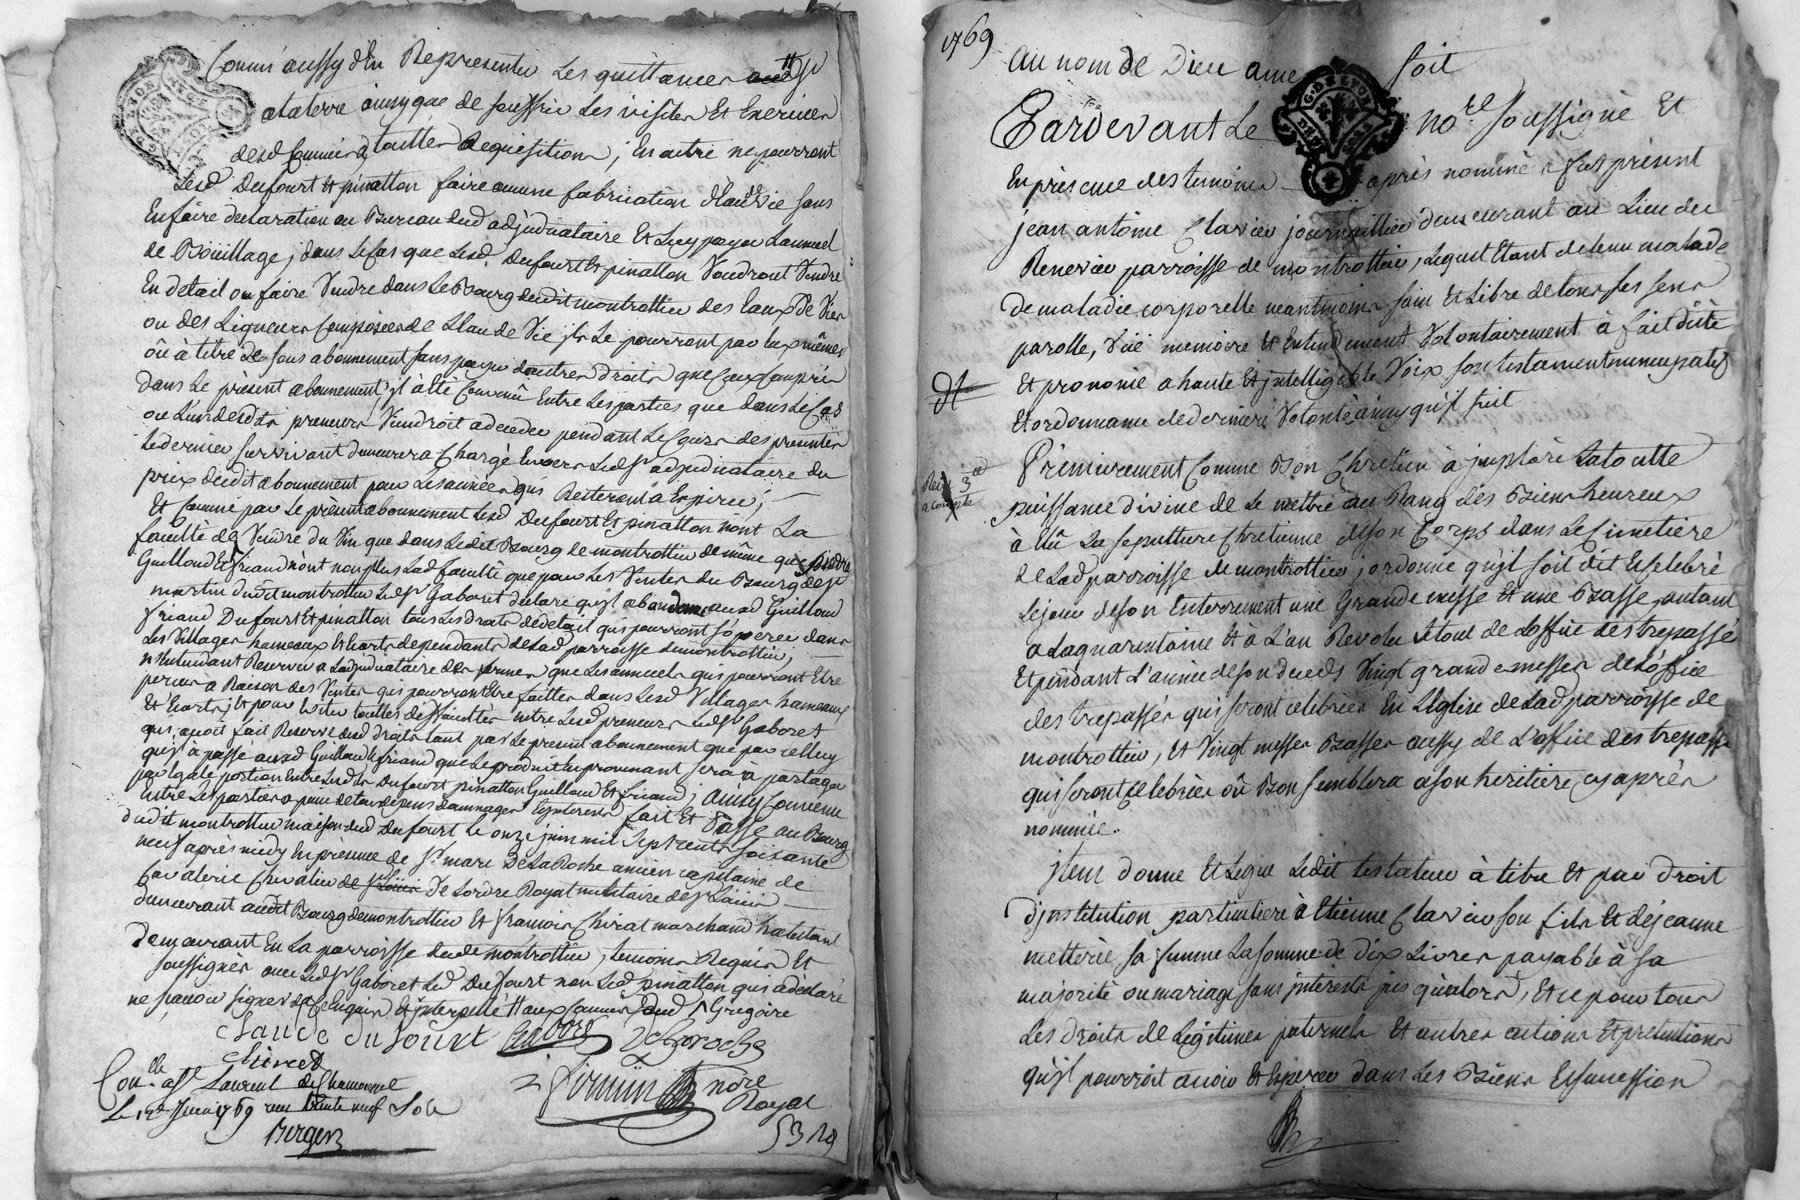 Comm' aussy d'En Representer Les quittances
ataterre ainsy que de souffrir Les visites Et Exercices
desd Commis a touttes Requisitions; En outre ne pourront
Lesd Dufourt Et pinatton faire aucune fabrication d'Eaudevie sans
En faire declaration au Bureau dud adjudicataire Et Luy payer Lannuel
de Boüillage; dans Le Cas que Lesd. Dufourt Et pinatton Voudront Vendre
En detail ou faire Vendre dans Le Bourg dudit montrottier des Eaux De Vies
ou des Liqueurs Composées de L'Eau de Vie jls Le pourront par Eux mêmes
oû à titre de sous abonnement sans payer d'autres droits que Ceux Compris
dans Le présent abonnement, jl à été Convenû Entre Les parties que dans Le Cas
ou L'un desdts preneurs Viendroit a deceder pendant Le Cours des presentes
Le dernier survivant demeurera Chargé Envers Led Sr adjudicataire du
prix dudit abonnement pour Les années qui Resteront a Expirer;
Et Comme par Le présent abonnement Lesd Dufourt Et pinatton nont La
faculté de Vendre du Vin que dans Ledit Bourg de montrottier de même que
Guilloud Et friand n'ont non plus Lad faculté que pour Les Ventes du Bourg de St
martin dudit montrottier Led Sr Gaboret declare qu'jl abandonne aud Guilloud
friand Dufourt Et pinatton tous Les droits de detail qui pourront s'operer dans
Les Villages hameaux Et Ecarts dependants de Lad parroisse de montrottier;
n'Entendant Reserver a Ladjudicataire des fermes que Les annuels qui pourront Etre
perçus a Raison des Ventes qui pourront Etre faittes dans Lesd Villages hameaux
Et Ecarts; Et pour Eviter touttes difficultés entre Lesd preneurs Led Sr Gaboret
qui auoit fait Reserve dud droits tant par Le present abonnement que par celluy
qu'jl à passé aud Guilloud Et friand que Le produit En provenant sera à partager
par Egale portion Entre Lesdts Dufourt pinatton Guilloud Et friand; Ainsy Convenu
Entre Les parties a peine de tous dépens dommages Et jnterests fait Et Passé au Bourg
dudit montrottier maison dud Dufourt Le onze juin mil sept cents soixante
neuf après midy En présence de Sr marc De La Roche ancien capitaine de
Cavalerie Chevalier de L'ordre Royal militaire de St Loüis
demeurant audit Bourg de montrottier Et françois Chirat marchand
Demeurant En La parroisse dud montrottier, temoins Requis Et
soussignés avec Led Sr Gaboret Led Dufourt non Led pinatton qui a declaré
ne savoir signer de Ce Enquis Et jnterpellé # aux Commis dud Sr Gregoire
Claude dufourt Gaboret Delaroche
Chirat
Con.lle a St Laurent de Chamousset
Le 12e Juin 1769 reçu trente neuf Sols
Berger
Firmin nore
Royal
1769
Au nom de Dieu ame soit
Pardevant Le nore soussigné Et
En présence des temoins après nommés fut présent
jean antoine Clavier journaillier demeurant au Lieu du
Renevier parroisse de montrottier, Lequel Etant detenu malade
De maladie corporelle neantmoins sain Et Libre de tous ses sens
parolle, Vüe memoire Et Entendement Volontairement à fait dicté
Et prononcé a haute Et jntelligeable Voix son testament nuncupatif
Et ordonnance de derniere Volonté ainsy qu'jl suit
Premierement Comme Bon Chretien à jmploré La toutte
puissance divine de Le mettre au Rang des Bienheureux
à Elû La sepulture Chretienne de son Corps dans Le Cimetiere
de Lad parroisse de montrottier; ordonne qu'jl soit dit Et Celebré
Le jour de son Enterrement une Grande messe Et une Basse, autant
a La quarentaine Et à L'an Revolu Le tout de L'office des trepassés
Et pendant L'année de son deceds Vingt grandes messes de L'office
des trepassés qui seront celebrées En L'Eglise de Lad parroisse de
montrottier, Et Vingt messes Basses aussy de L'office des trepassés
qui seront Celebrées oû Bon semblera a son heritiere cy après
nommée.
jtem donne Et Legue Ledit testateur à titre Et par droit
D'jnstitution particuliere à Etienne Clavier son fils Et de jeanne
metterie sa femme La somme de dix Livres payable à sa
majorité ou mariage sans jnterests jusqu'alors, Et ce pour tous
Les droits de Légitimes paternels Et autres actions Et pretentions
qu'jl pourroit avoir Et Esperer dans Les Biens Et succession